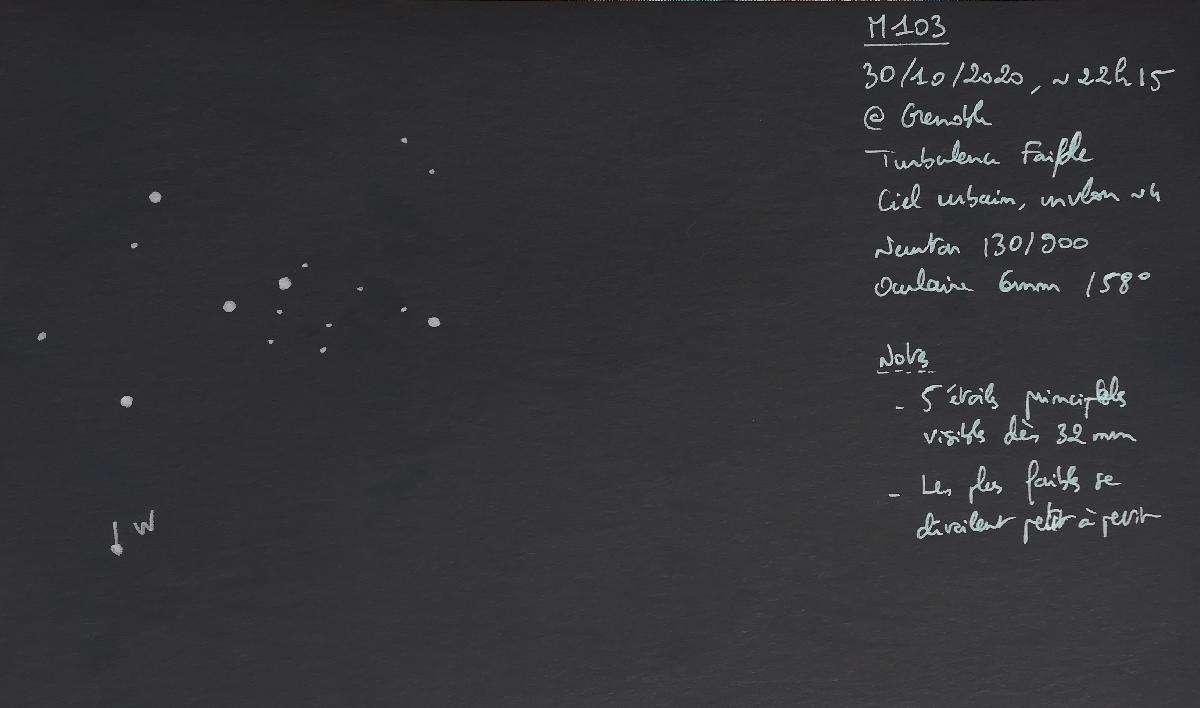 M103
30/10/2020, ~22h15
@ Grenoble
Turbulence Faible
Ciel urbain, ~4
Newton 130/900
Oculaire 6mm /58°
Notes
- 5 étoiles principales
visibles dès 32 mm
- Les plus faibles se
dévoilent petit à petit
W